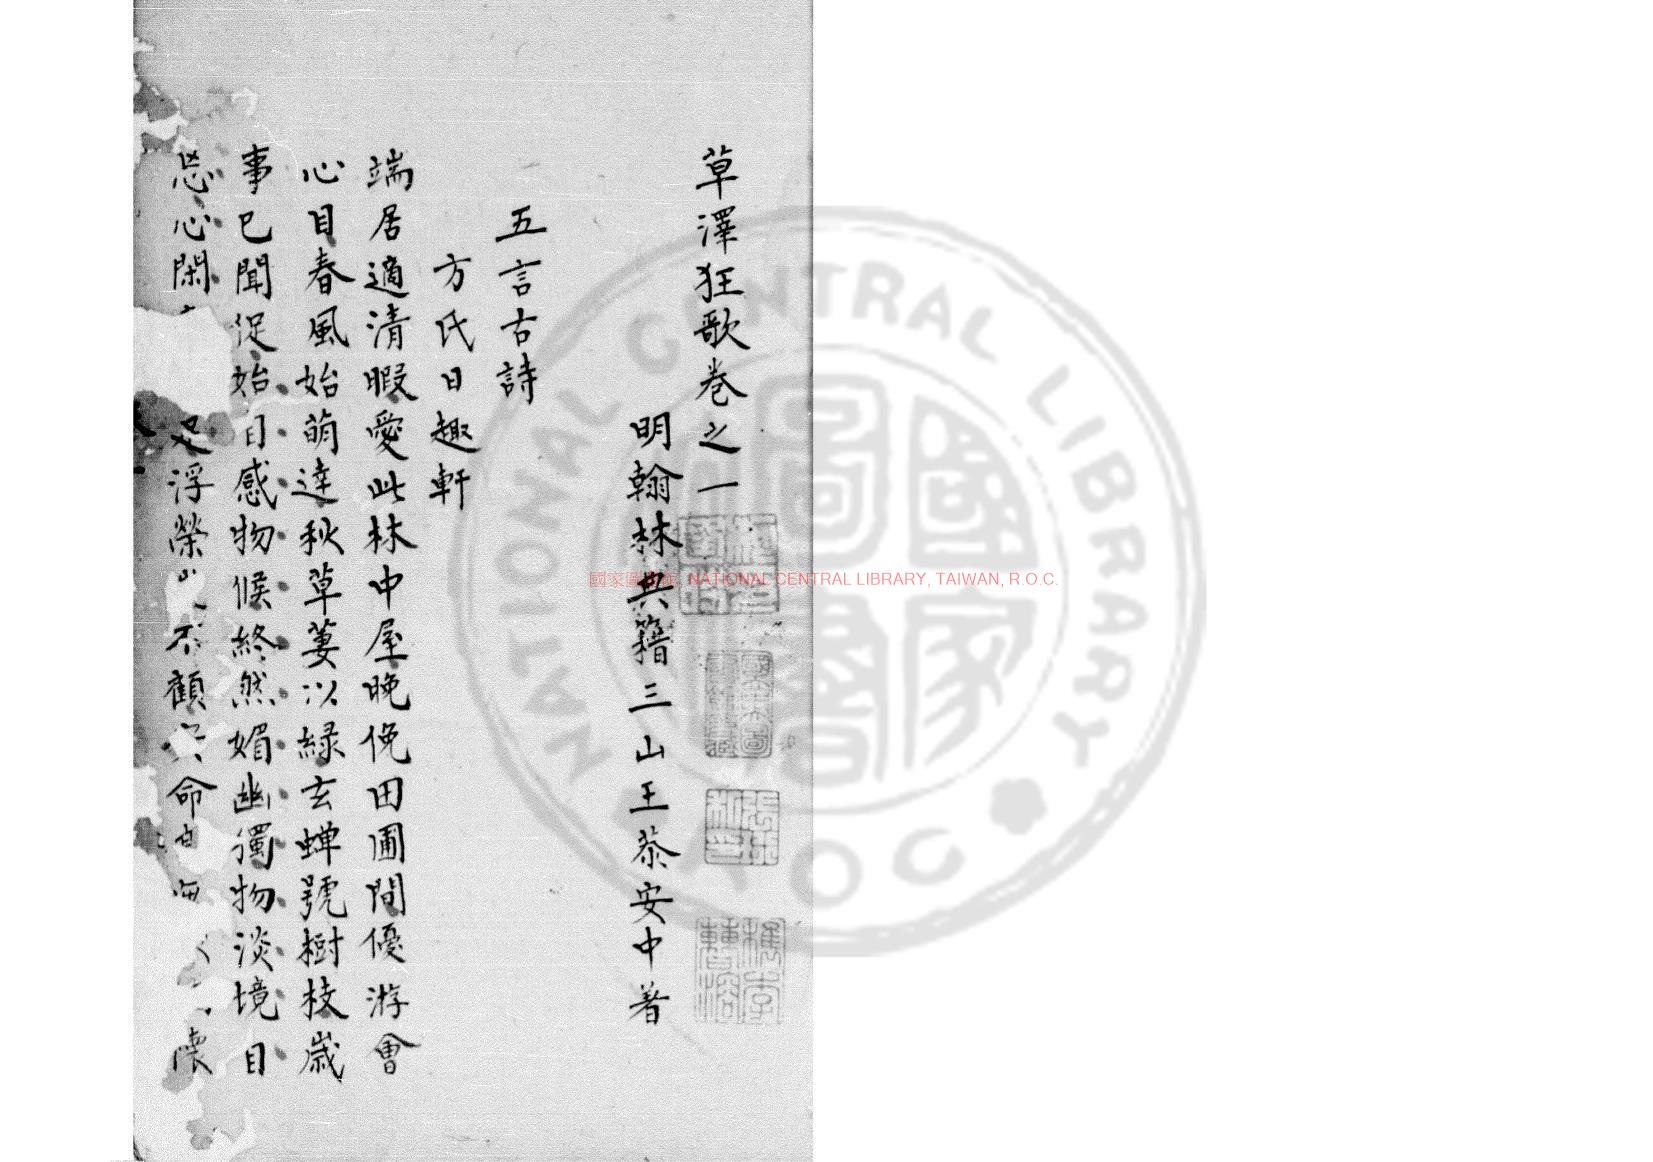 草澤狂歌卷之一
明翰林典籍三山王恭安中著
五言古詩
方氏日趣軒
端居適清暇愛此林中屋晚俛田圃間優游會
心目春風始萌達秋草萋以緑玄蟬號樹枝歲
事已聞促始日感物候終然媚幽獨物淡境自
忘心閑 是浮榮 不顧 命 懷
國家圖書館 NATIONAL CENTRAL LIBRARY, TAIWAN, R.O.C.
NATIONAL CENTRAL LIBRARY